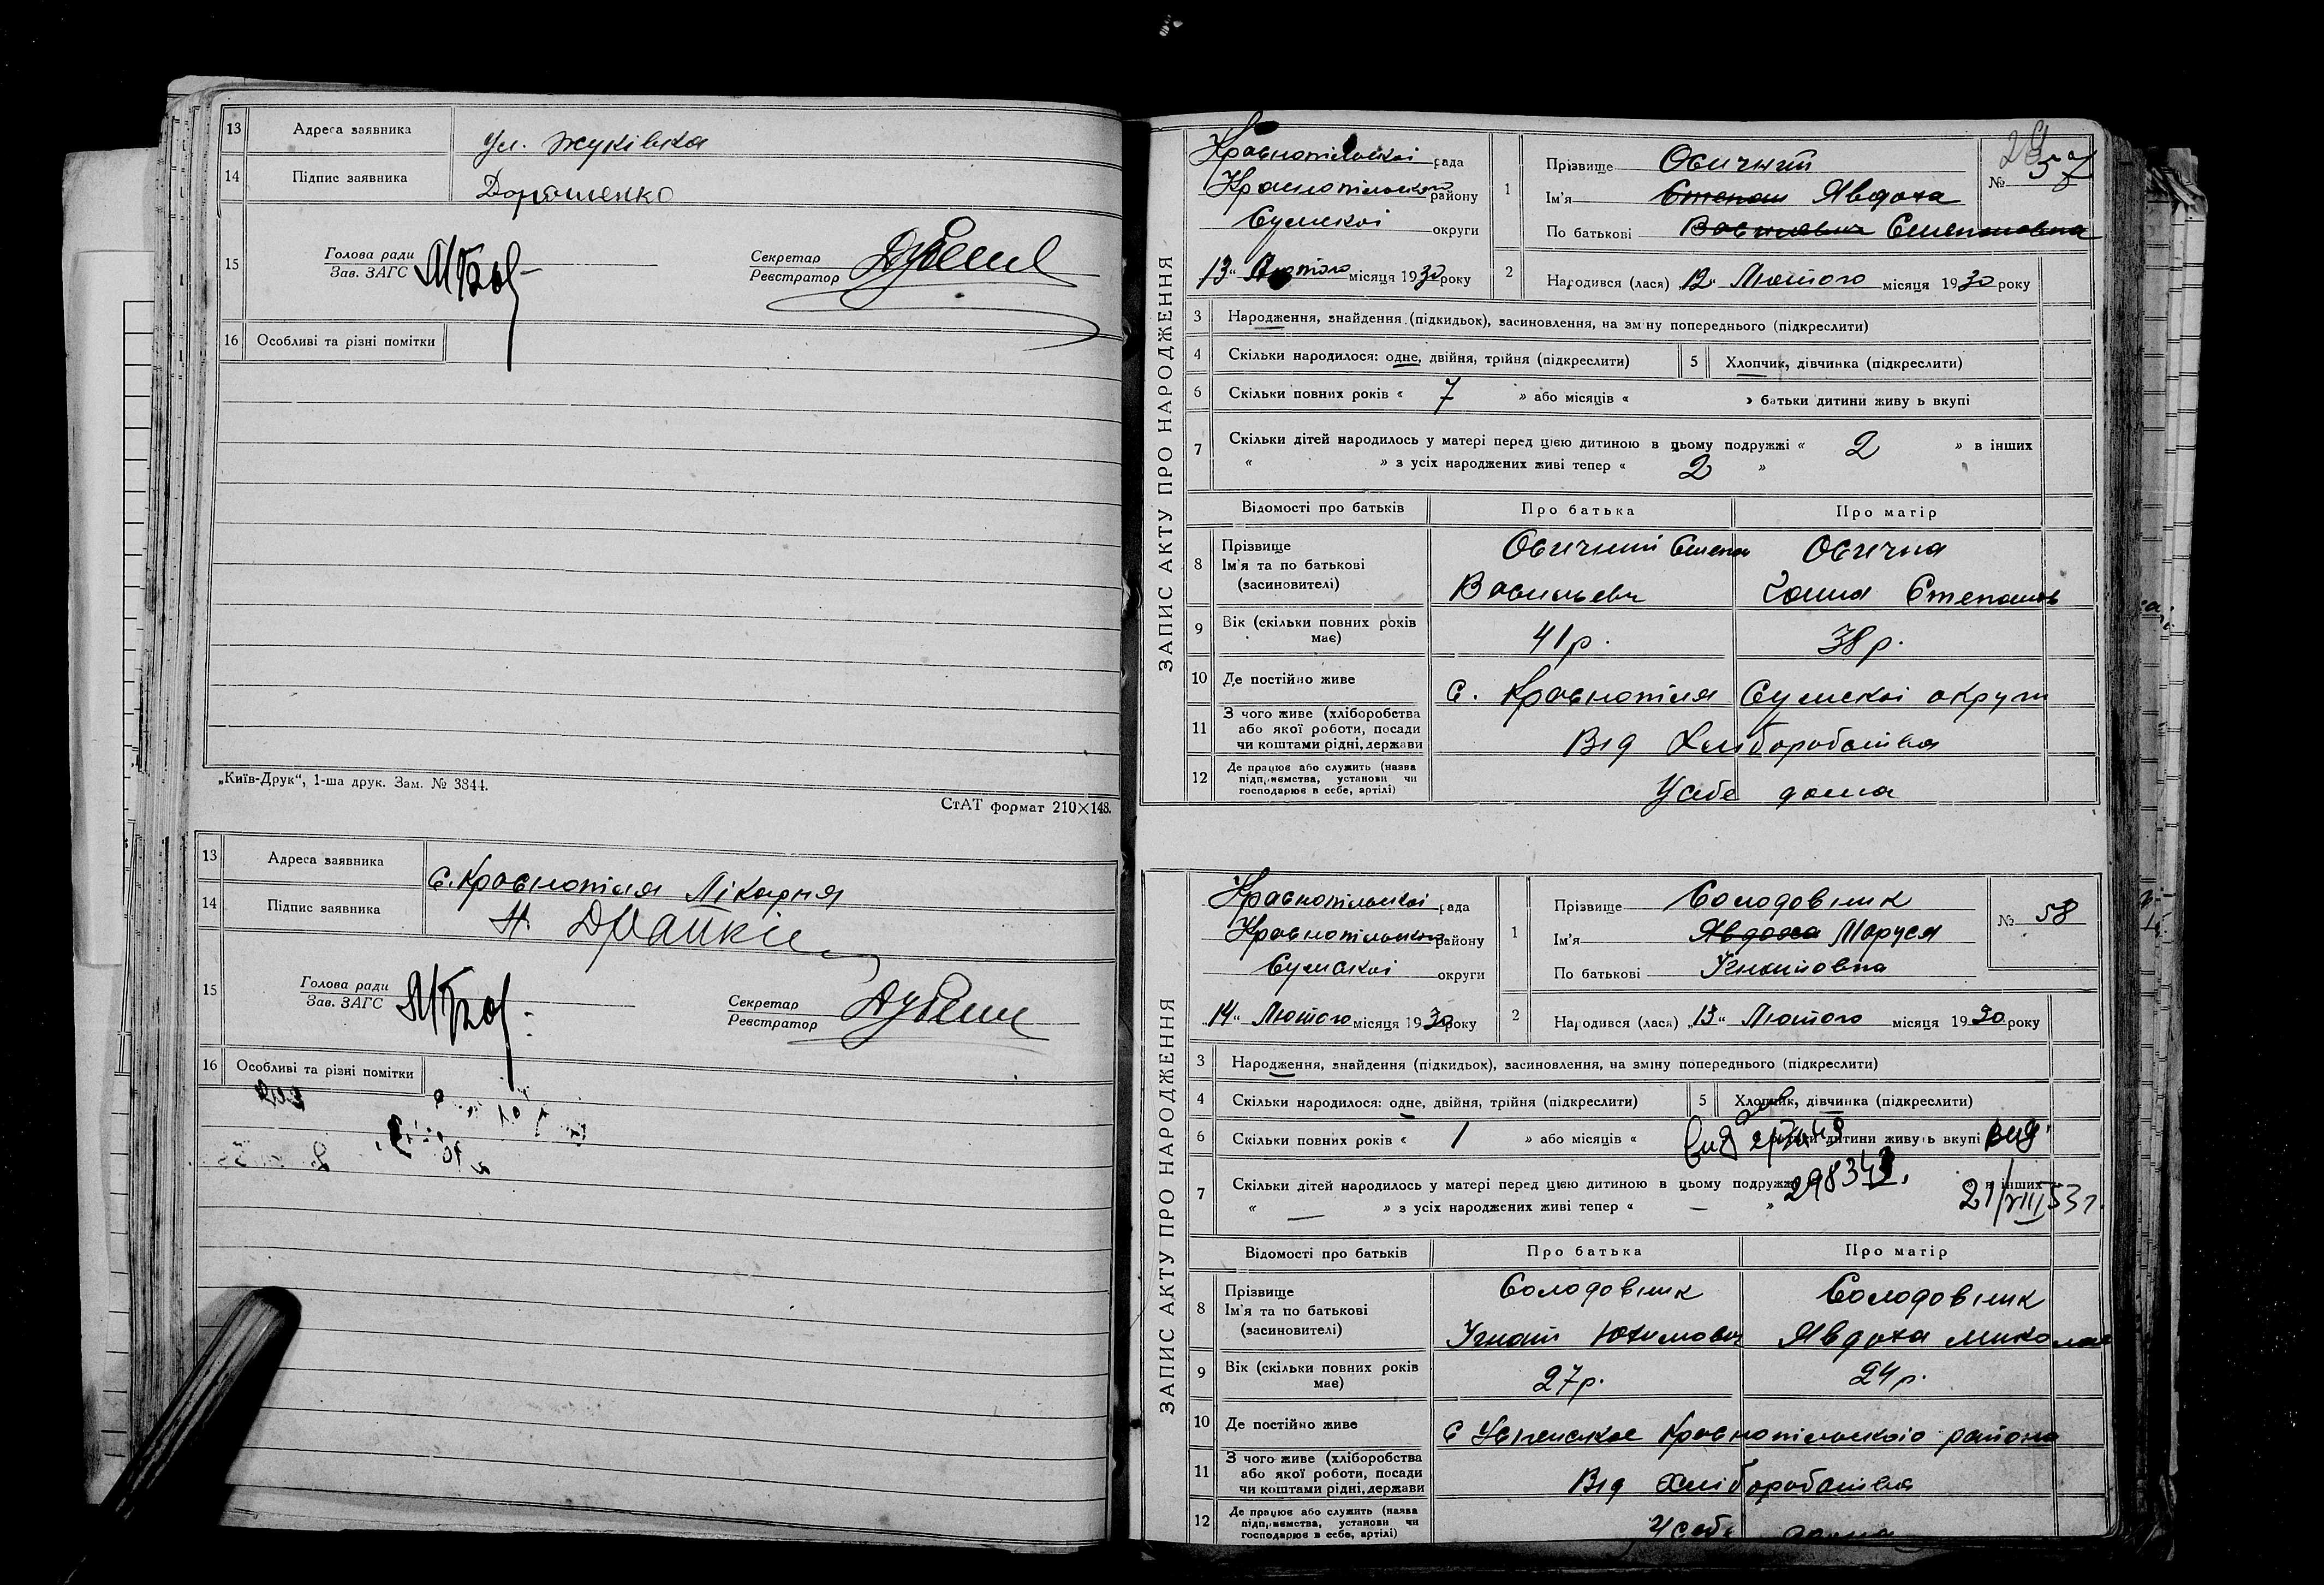 13 Адреса заявника Ул. Жуківка
14 Підпис заявника Дорошенко
15 Голова ради
Зав. ЗАГС
Секретар
Реєстратор
16 Особливі та різні помітки
„Київ-Друк“, 1-ша друк. Зам. № 3844.
СтАТ формат 210×148.
13 Адреса заявника с. Краснопілля Лікарня
14 Підпис заявника
15 Голова ради
Зав. ЗАГС
Секретар
Реєстратор
16 Особливі та різні помітки
ЗАПИС АКТУ ПРО НАРОДЖЕННЯ
Краснопільскої рада
Краснопільского району
Сумскої округи
13 Лютого місяця 1930 року
№ 57
1 Прізвище Овичний
Ім'я Степан Явдоха
По батькові Васильевич Степановна
2 Народився (лася) „12“ Лютого місяця 1930 року
3 Народження, знайдення (підкидьок), засиновлення, на зміну попереднього (підкреслити)
4 Скільки народилося: одне, двійня, трійня (підкреслити)
5 Хлопчик, дівчинка (підкреслити)
6 Скільки повних років « 7 » або місяців « » батьки дитини живуть вкупі
7 Скільки дітей народилось у матері перед цією дитиною в цьому подружжі « 2 » в інших
« » з усіх народжених живі тепер « 2 »
Відомості про батьків Про батька Про матір
8 Прізвище
Ім'я та по батькові
(засиновителі)
Овичний Степан
Васильевич
Овична
Ганна Степанов
9 Вік (скільки повних років має) 41 р. 38 р.
10 Де постійно живе с. Краснопілля Сумскої округи
11 З чого живе (хліборобства
або якої роботи, посади
чи коштами рідні, держави
Від Хліборобства
12 Де працює або служить (назва
підприємства, установи чи
господарює в себе, артілі)
У себе дома
ЗАПИС АКТУ ПРО НАРОДЖЕННЯ
Краснопільскої рада
Краснопільского району
Сумскої округи
„14“ Лютого місяця 1930 року
№ 58
1 Прізвище Солодовник
Ім'я Явдоха Маруся
По батькові Гнатовна
2 Народився (лася) „13“ Лютого місяця 1930 року
3 Народження, знайдення (підкидьох), засиновлення, на зміну попереднього (підкреслити)
4 Скільки народилося: одне, двійня, трійня (підкреслити)
5 Хлопчик, дівчинка (підкреслити)
6 Скільки повних років « 1 » або місяців « батьки дитини живуть вкупі
7 Скільки дітей народилось у матері перед цією дитиною в цьому подружжі в інших
« — » з усіх народжених живі тепер « — »
21/VIII 53 г.
Відомості про батьків Про батька Про матір
8 Прізвище
Ім'я та по батькові
(засиновителі)
Солодовник
Гнат Юхимович
Солодовник
Явдоха Микола
9 Вік (скільки повних років має) 27 р. 24 р.
10 Де постійно живе с Успенское Краснопільского района
11 З чого живе (хліборобства
або якої роботи, посади
чи коштами рідні, держави
Від хліборобства
12 Де працює або служить (назва
підприємства, установи чи
господарює в себе, артілі)
У себе дома